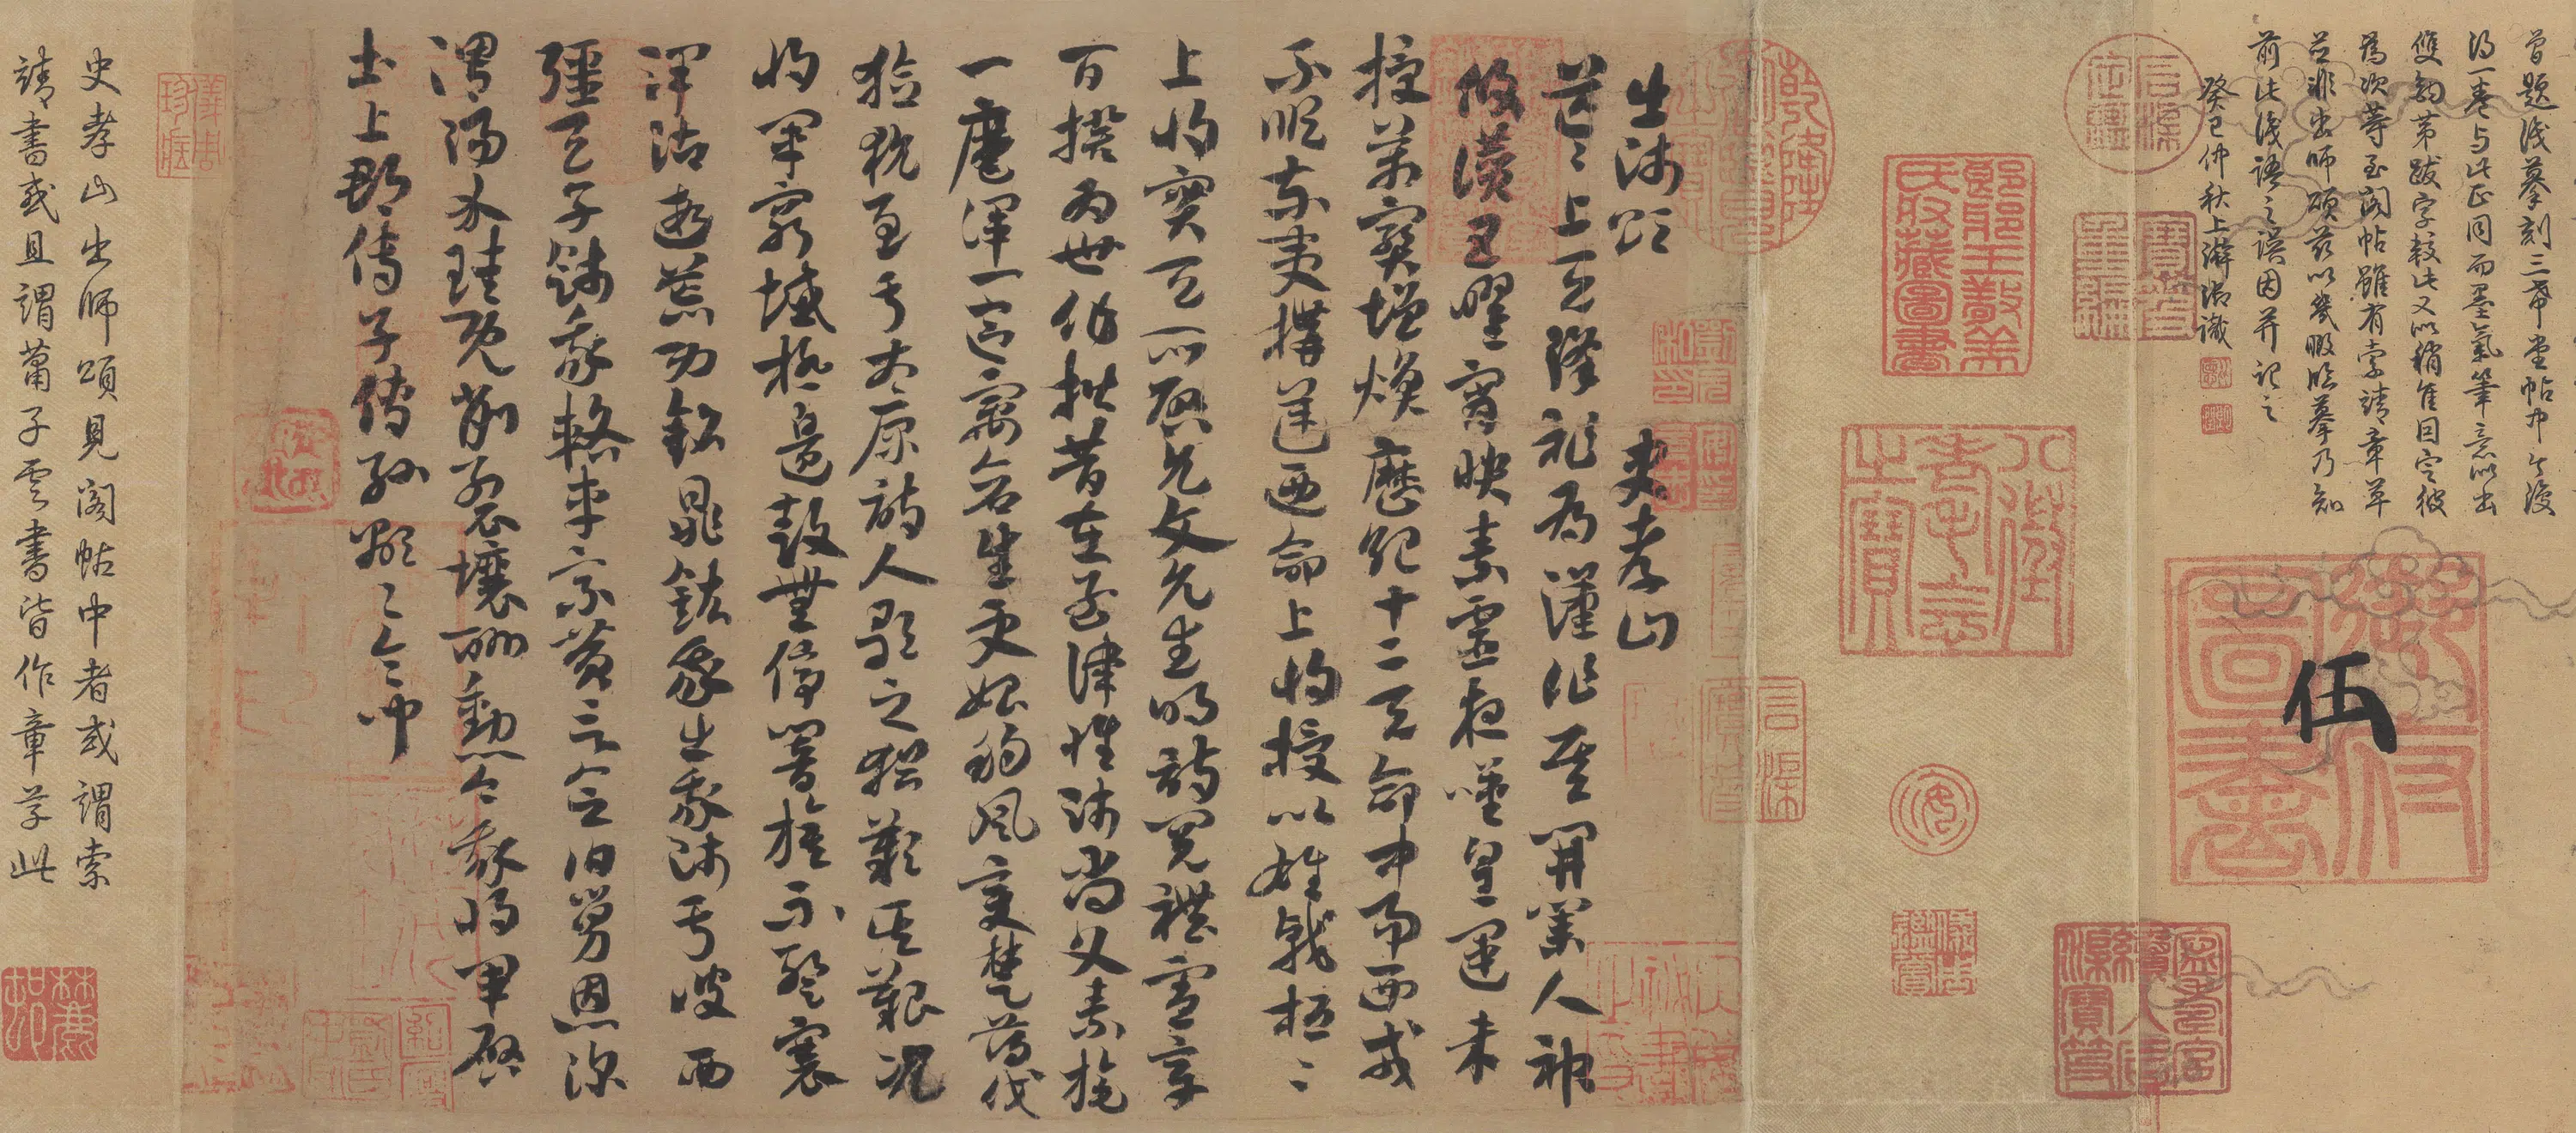 曾題淺摹刻三希堂帖中今復
得一卷与此正同而墨氣筆意似出
雙鉤第跋字較此又似稍佳因定彼
為次等至閣帖雖有索靖章草
並非出師頌茲以幾暇臨摹乃知
前此淺語之誤因并記之
癸巳仲秋上澣御識
伍
出師頌 史孝山
茫茫上天降祚為漢作基開業人神
攸讚五曜宵映素靈夜嘆皇運未
授萬寶增煥歷紀十二天命中易西戎
不順東夷構逆迺命上將授以雄戟桓桓
上將寔天所啟允文允武明詩閱禮憲章
百揆為世作楷昔在孟津惟師尚父素旄
一麾渾一區寓蒼生更始朔風變楚薄伐
獫狁至于太原詩人歌之猶歎其艱況
我將軍窮城極邊鼓無停響旗不蹔褰
澤沾遐荒功銘鼎鉉我出我師于彼西
疆天子餞我輅車乘黃言念伯舅恩深
渭陽介珪既削列壤酬勳今我將軍啟
土上郡傳子傳孫顯顯令問
史孝山出師頌見閣帖中者或謂索
靖書或且謂蕭子雲書皆作章草此